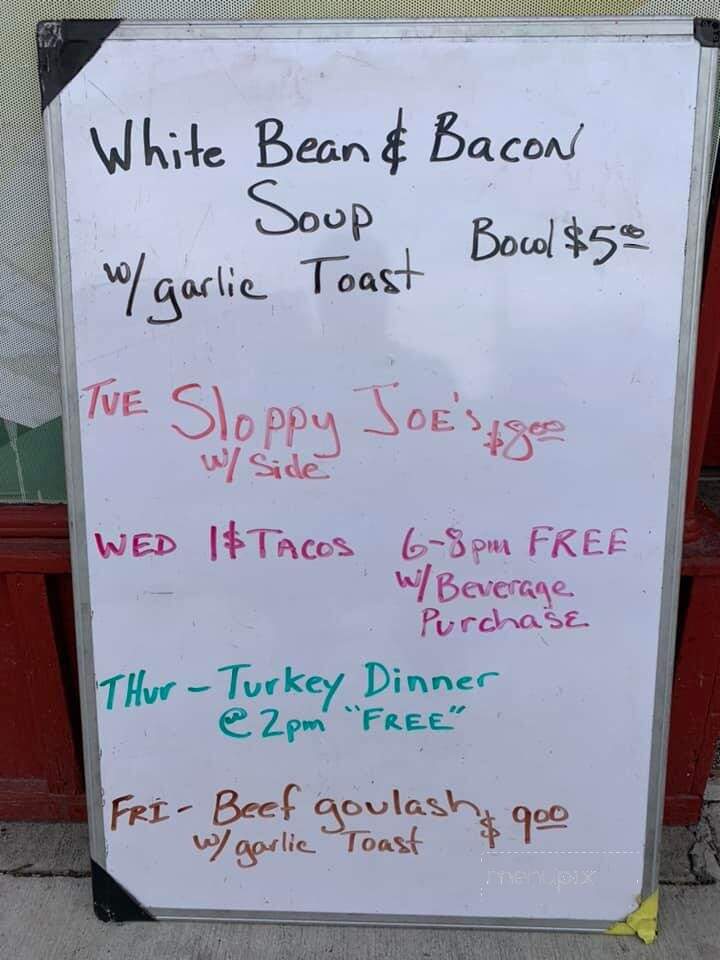 White Bean & Bacon
Soup
Bowl $5.00
w/ garlic Toast
TUE Sloppy JOE'S $8.00
w/ Side
WED 1$ TACOS 6-8pm FREE
w/ Beverage
Purchase
THur - Turkey Dinner
@ 2pm "FREE"
FRI - Beef goulash $ 9.00
w/ garlic Toast
menupix